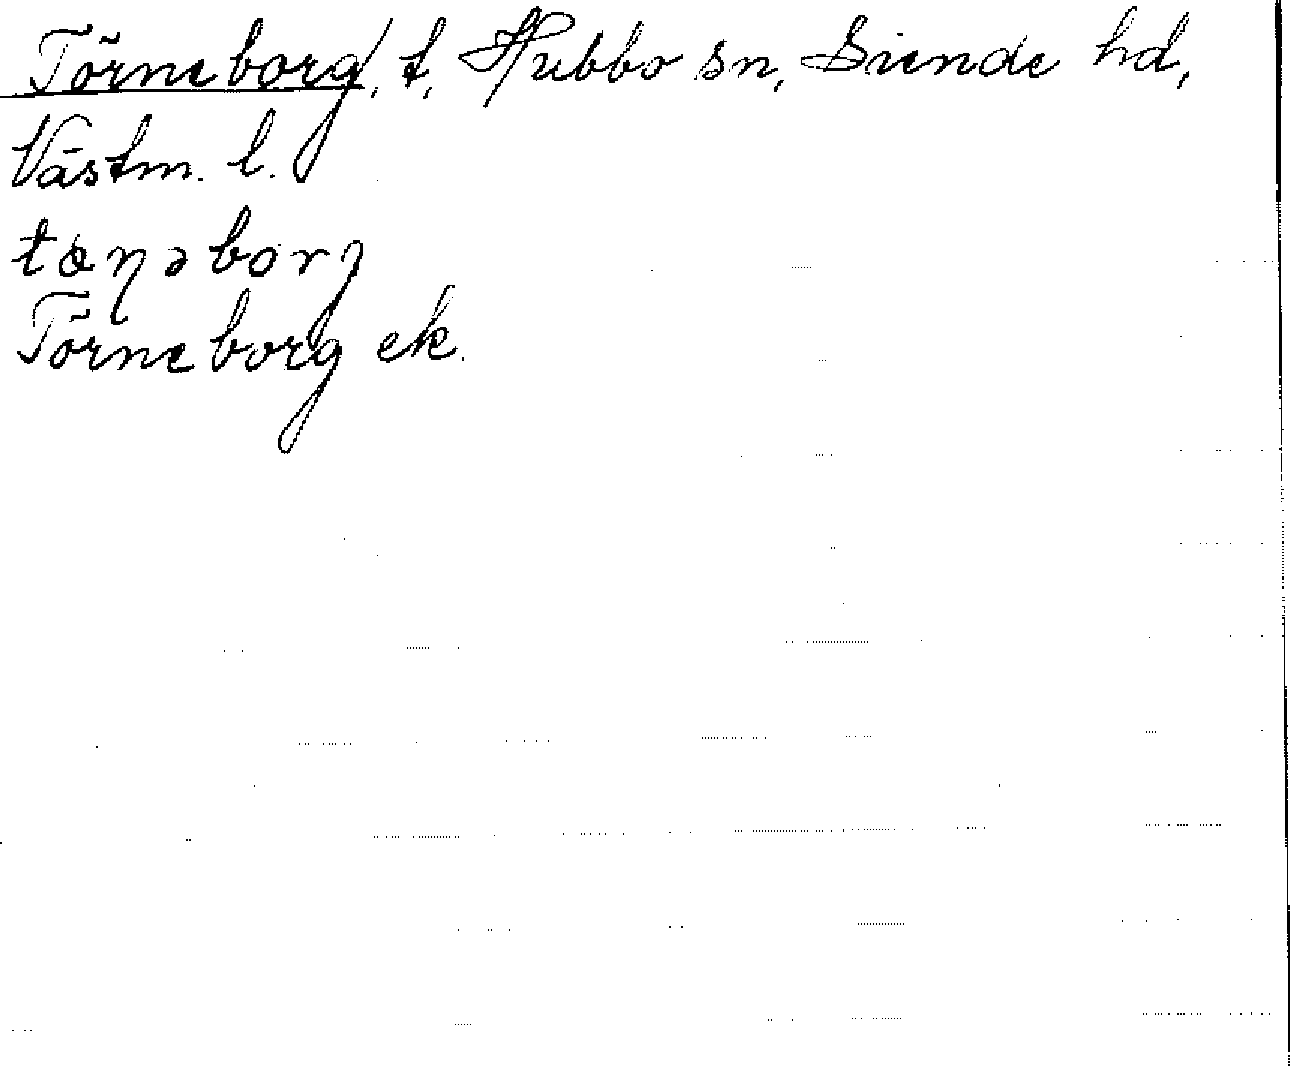 Törneborg, t, Hubbo sn, Siende hd,
Västm. l.
tɷɳəborɡ
Törneborg ek.